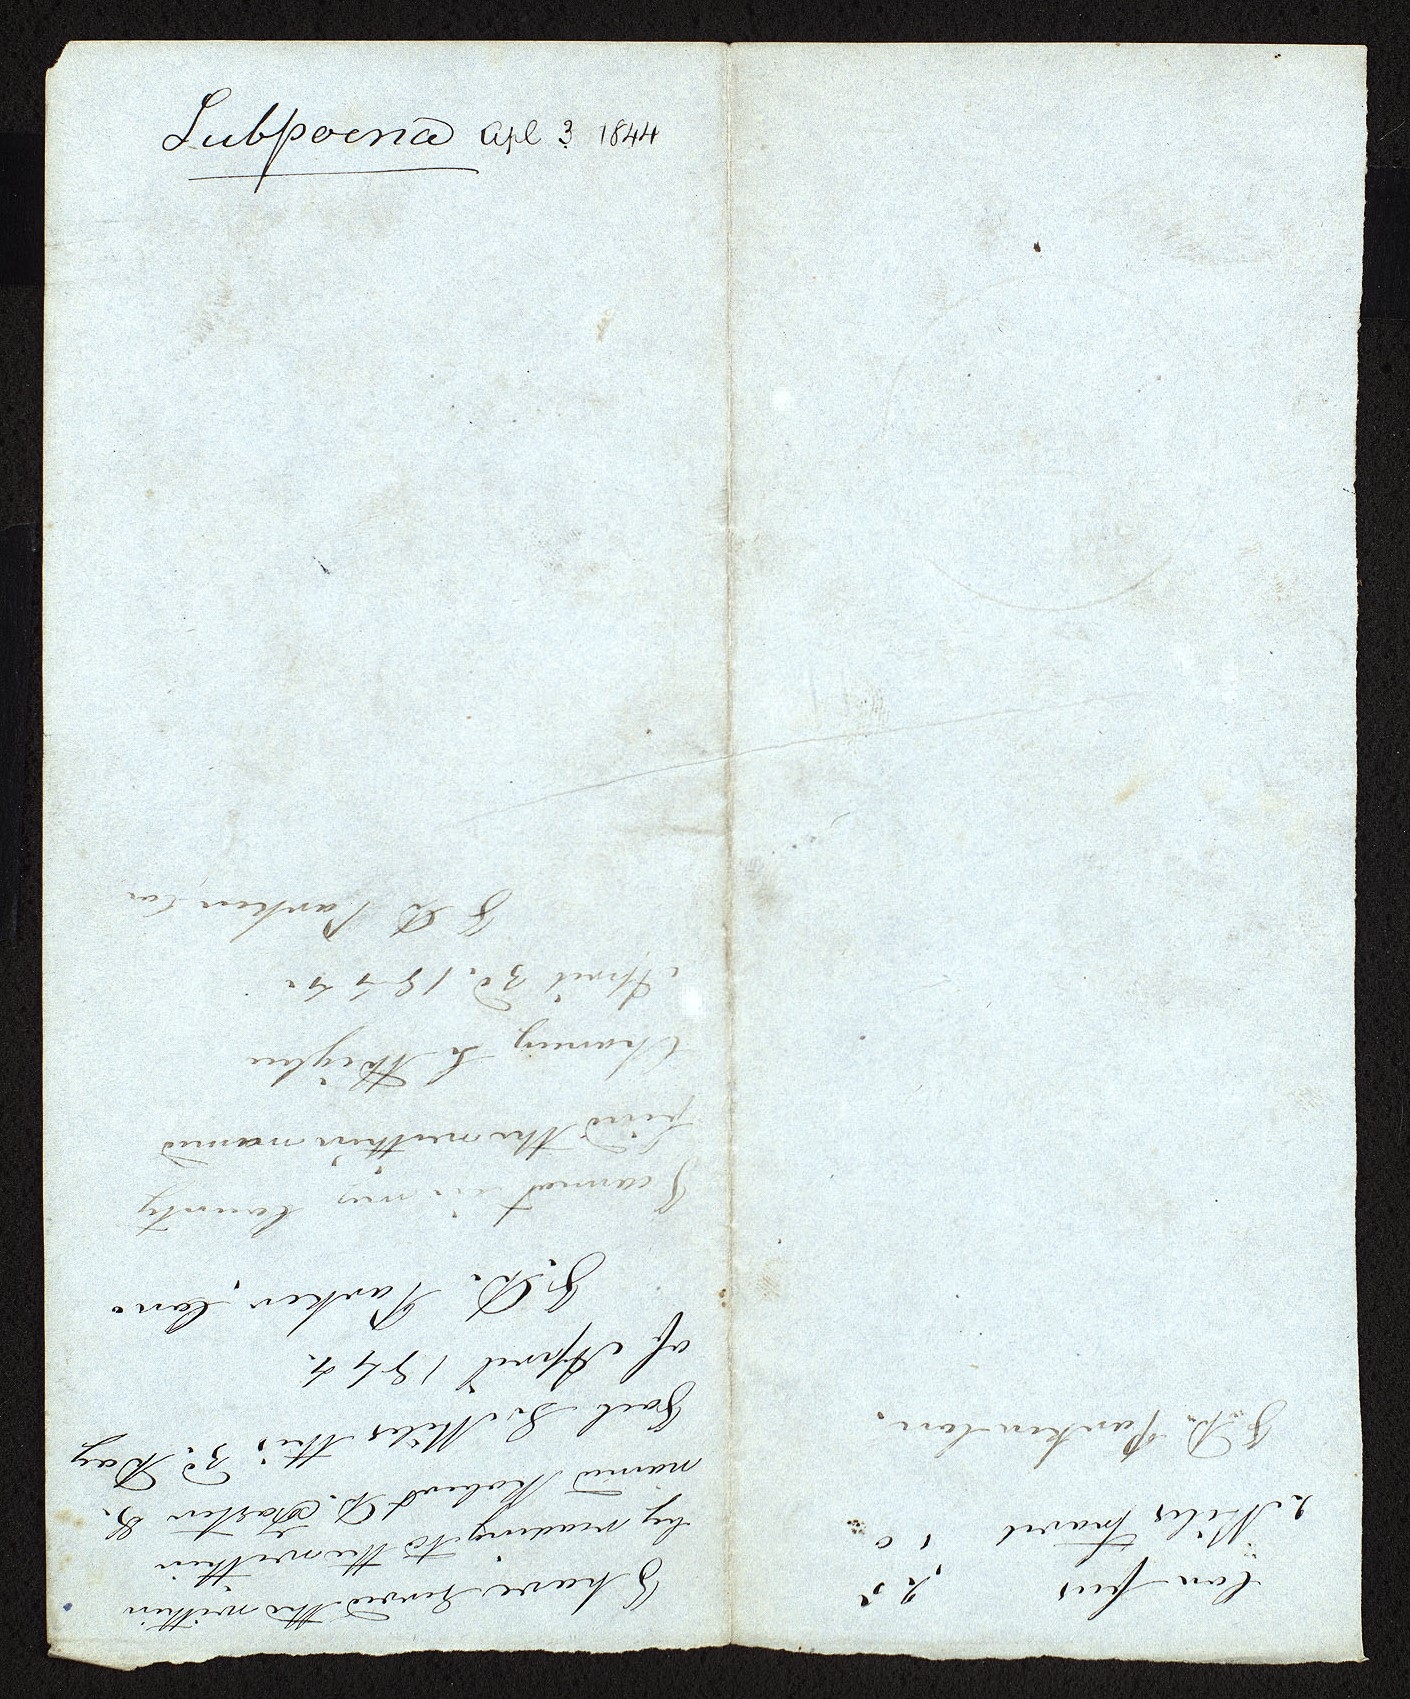 Subpoena Apl 3 1844
I have served the within
by reading to the within
named Robert D. Foster &
Joel S. Miles this 3d. Day
of April 1844.
J. D. Parker, Con.
I cannot in my County
find the within named
April 3d. 1844
J D Parker Con
Con fees 25
2 Miles travel 10
J. D. Parker Con.